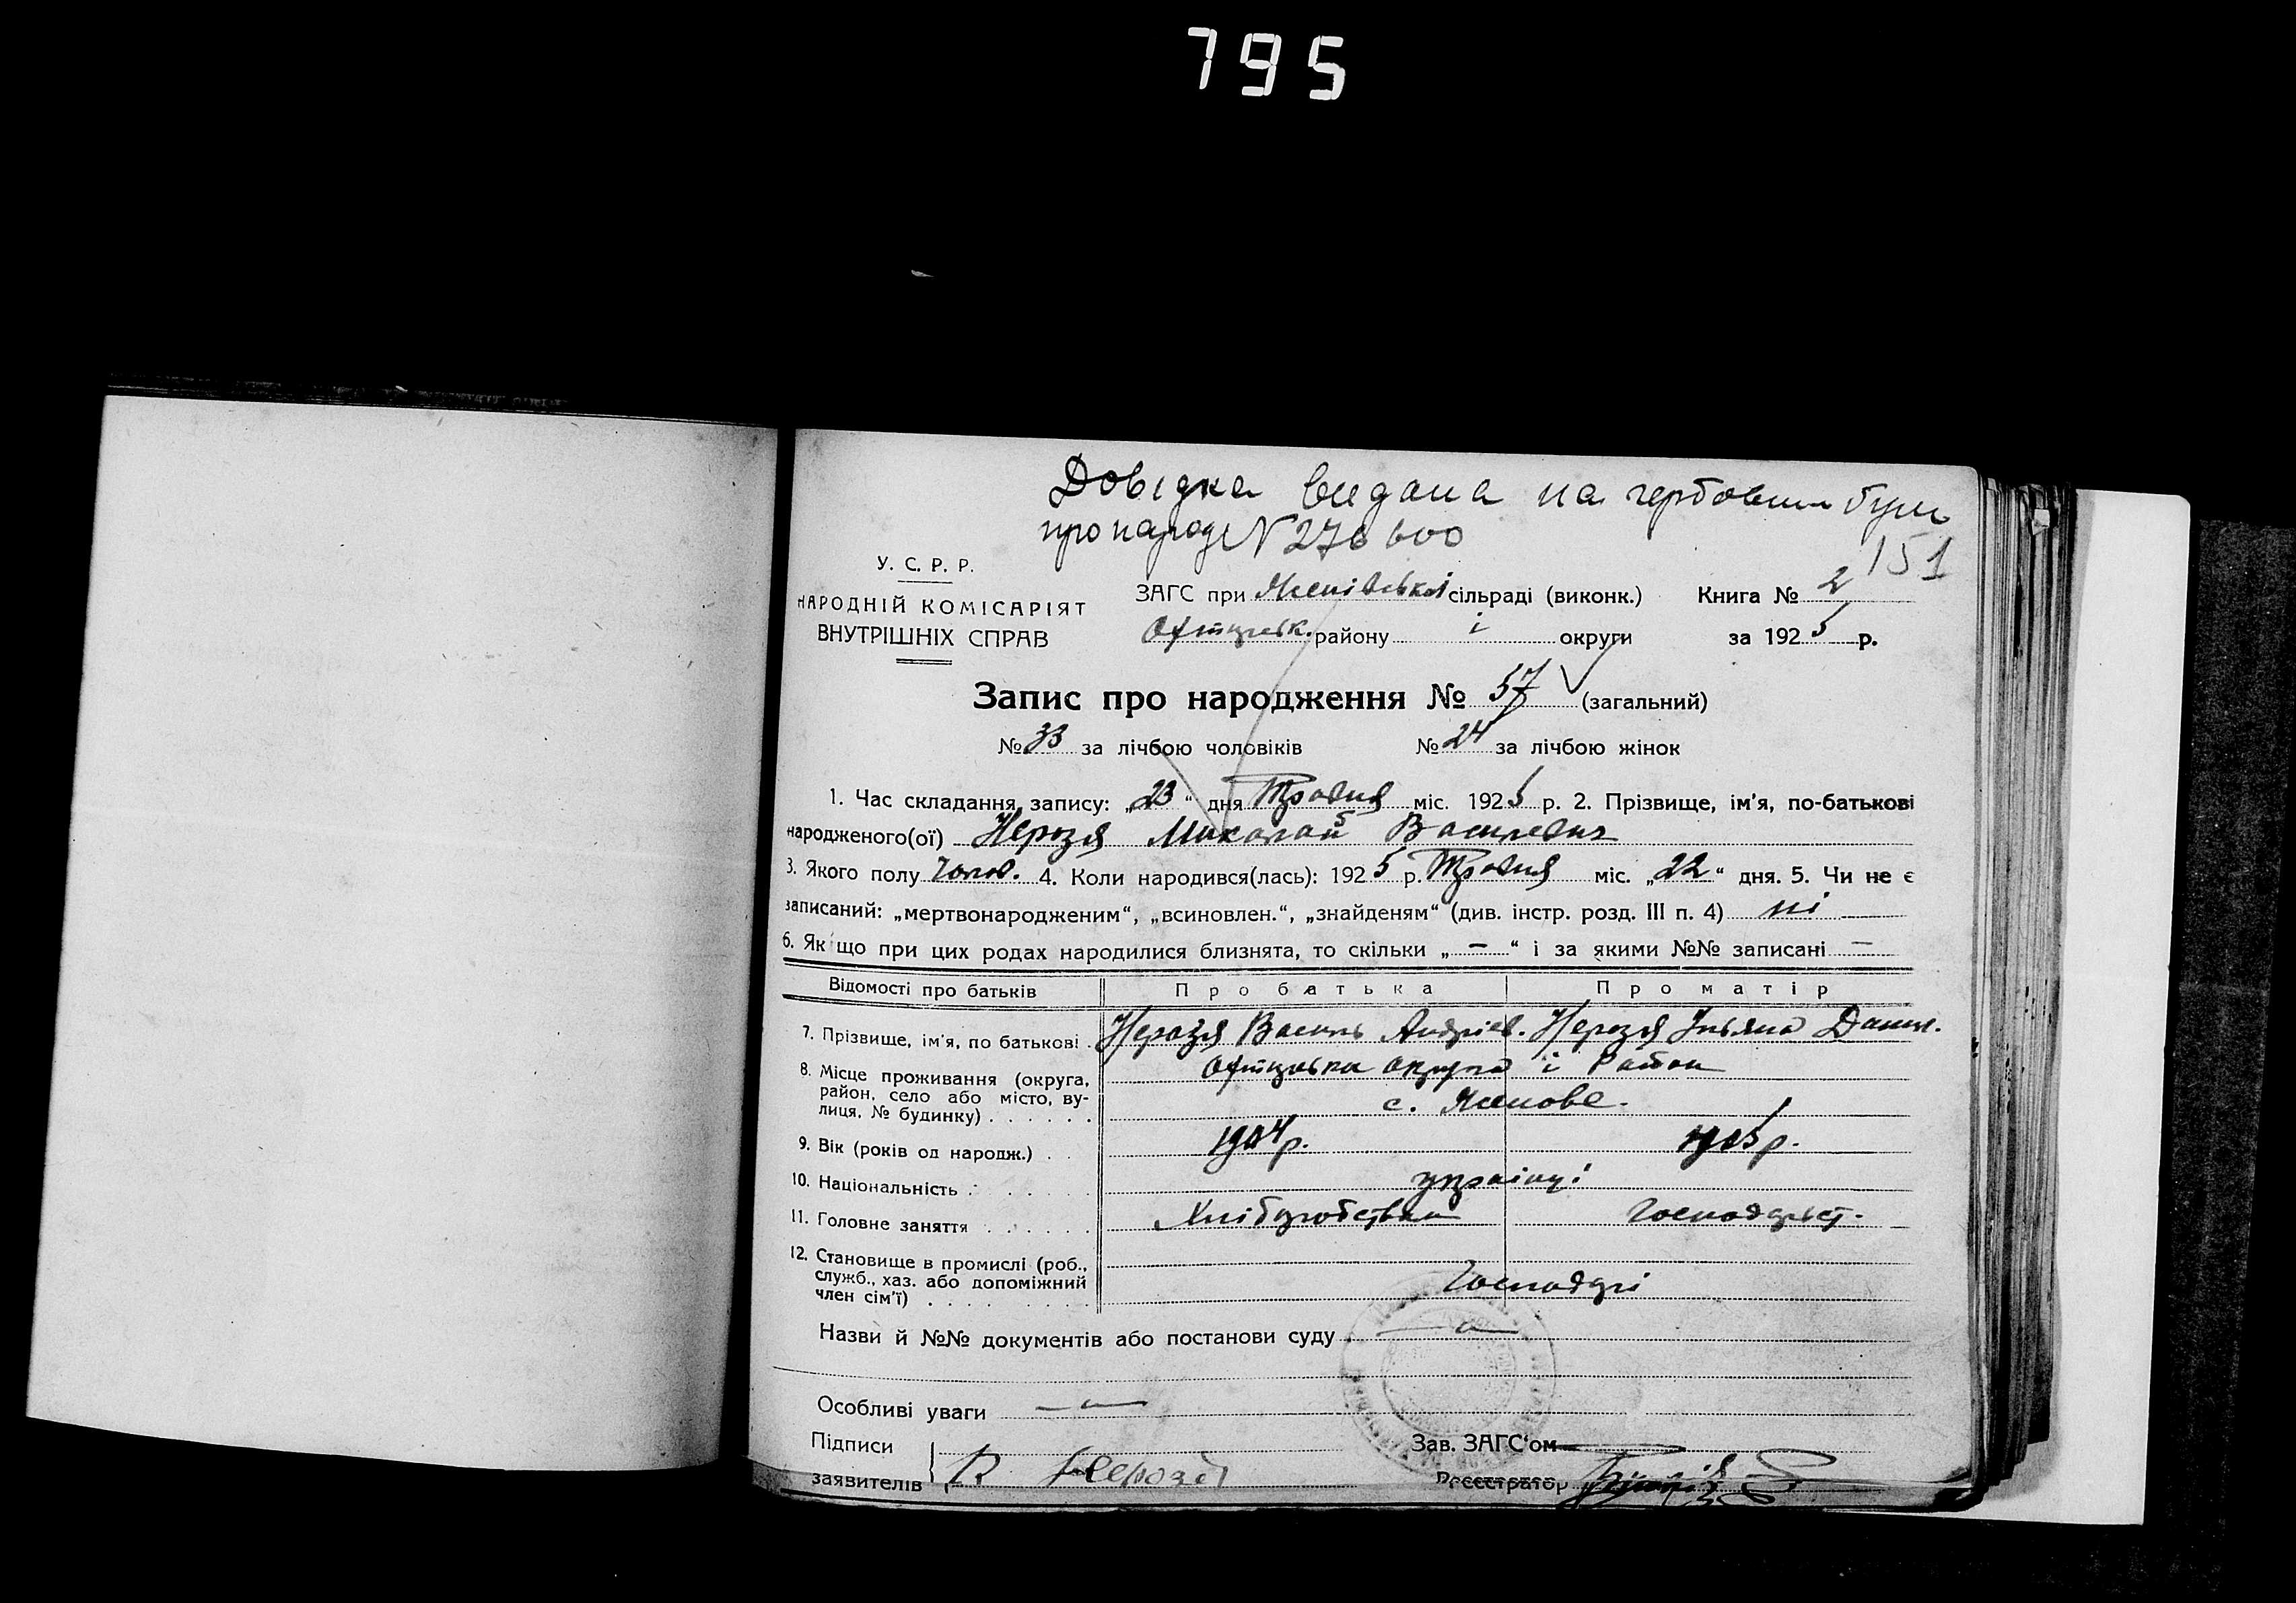 795
Довідка видана на гербовим бум
про народ N 276600
151
У. С. Р. Р.
НАРОДНІЙ КОМІСАРІЯТ
ВНУТРІШНІХ СПРАВ
ЗАГС при Ясенівській сільраді (виконк.) Книга № 2
району і округи за 1925 р.
Запис про народження № 57 (загальний)
№ 33 за лічбою чоловіків № 24 за лічбою жінок
1. Час складання запису: „23“ дня Травня міс. 1925 р. 2. Прізвище, ім’я, по-батькові
народженого(ої) Нерозя Миколай Василевич
3. Якого полу Чолов. 4. Коли народився(лась): 1925 р. Травня міс. „22“ дня. 5. Чи не є
записаний: „мертвонародженим“, „всиновлен.“, „знайденям“ (див. інстр. розд. III п. 4) ні
6. Як що при цих родах народилися близнята, то скільки „—“ і за якими №№ записані —
Відомості про батьків Про батька Про матір
7. Прізвище, ім’я, по батькові . Нерозя Василь Андріев. Нерозя Ульяна Данил.
8. Місце проживання (округа, округа і Район
район, село або місто, ву-
лиця, № будинку) . . . . . . с.
9. Вік (років од народж.) . . 1904 р. 1905 р.
10. Національність . . . . . . україці
11. Головне заняття . . . . . . Хліборобством господарст.
12. Становище в промислі (роб.,
служб., хаз. або допоміжний Господарі
член сім’ї) . . . . . . . .
Назви й №№ документів або постанови суду —
Особливі уваги —
Підписи Зав. ЗАГС‘ом
заявителів В Нерозя Реєстратор